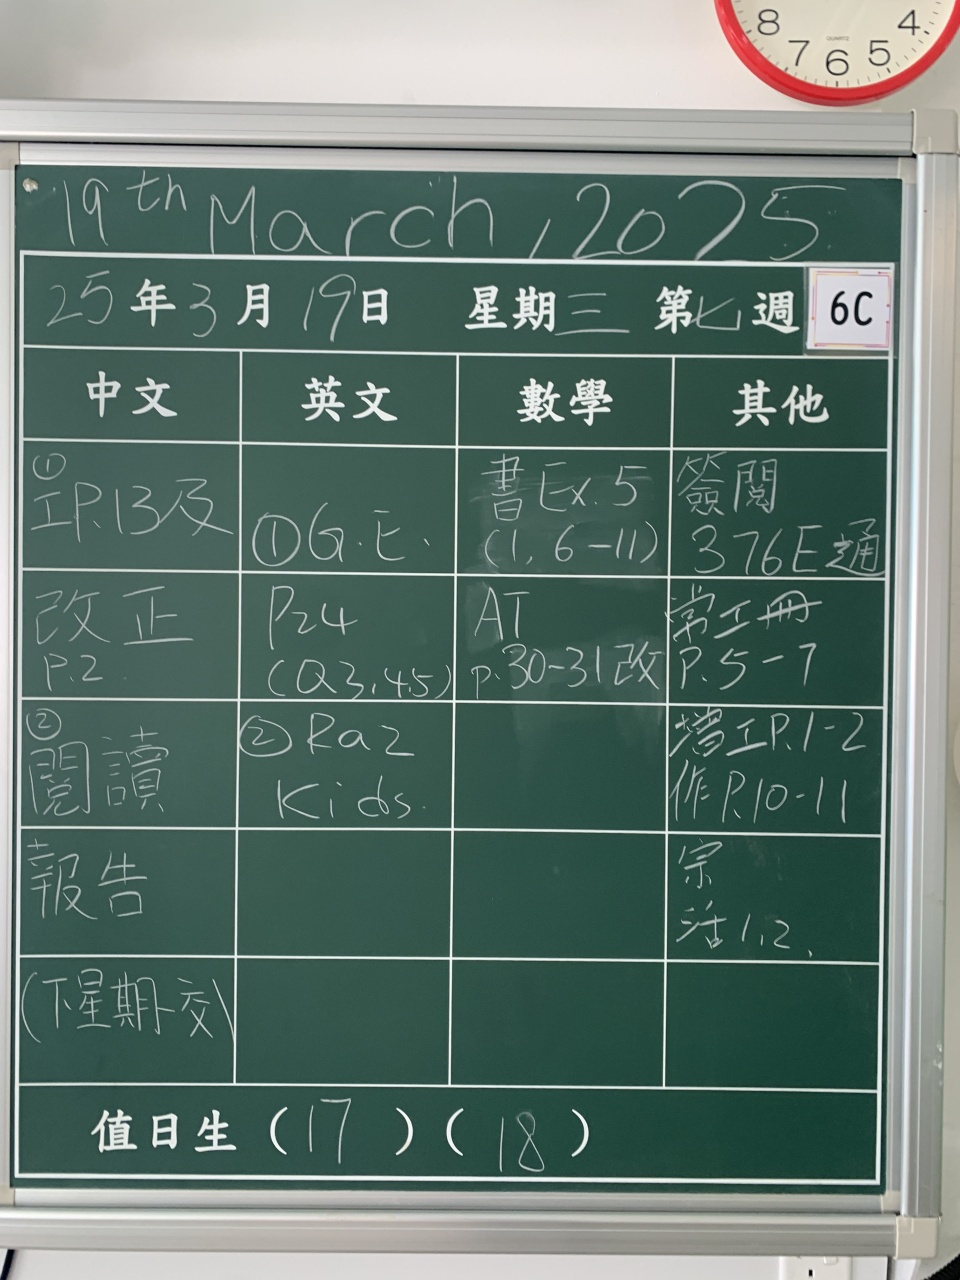 8 7 6 5 4
QUARTZ
19th March, 2025
25年3月19日 星期三 第七週 6C
中文 英文 數學 其他
①
工P.13及
改正
P.2
②
閱讀
報告
(下星期一交)
①G.E.
P24
(Q3,4,5)
②Raz
Kids.
書Ex.5
(1, 6-11)
AT
p.30-31改
簽閱
376E通
常工冊
P.5-7
P.1-2
作P.10-11
宗
活1,2,
值日生 (17) (18)